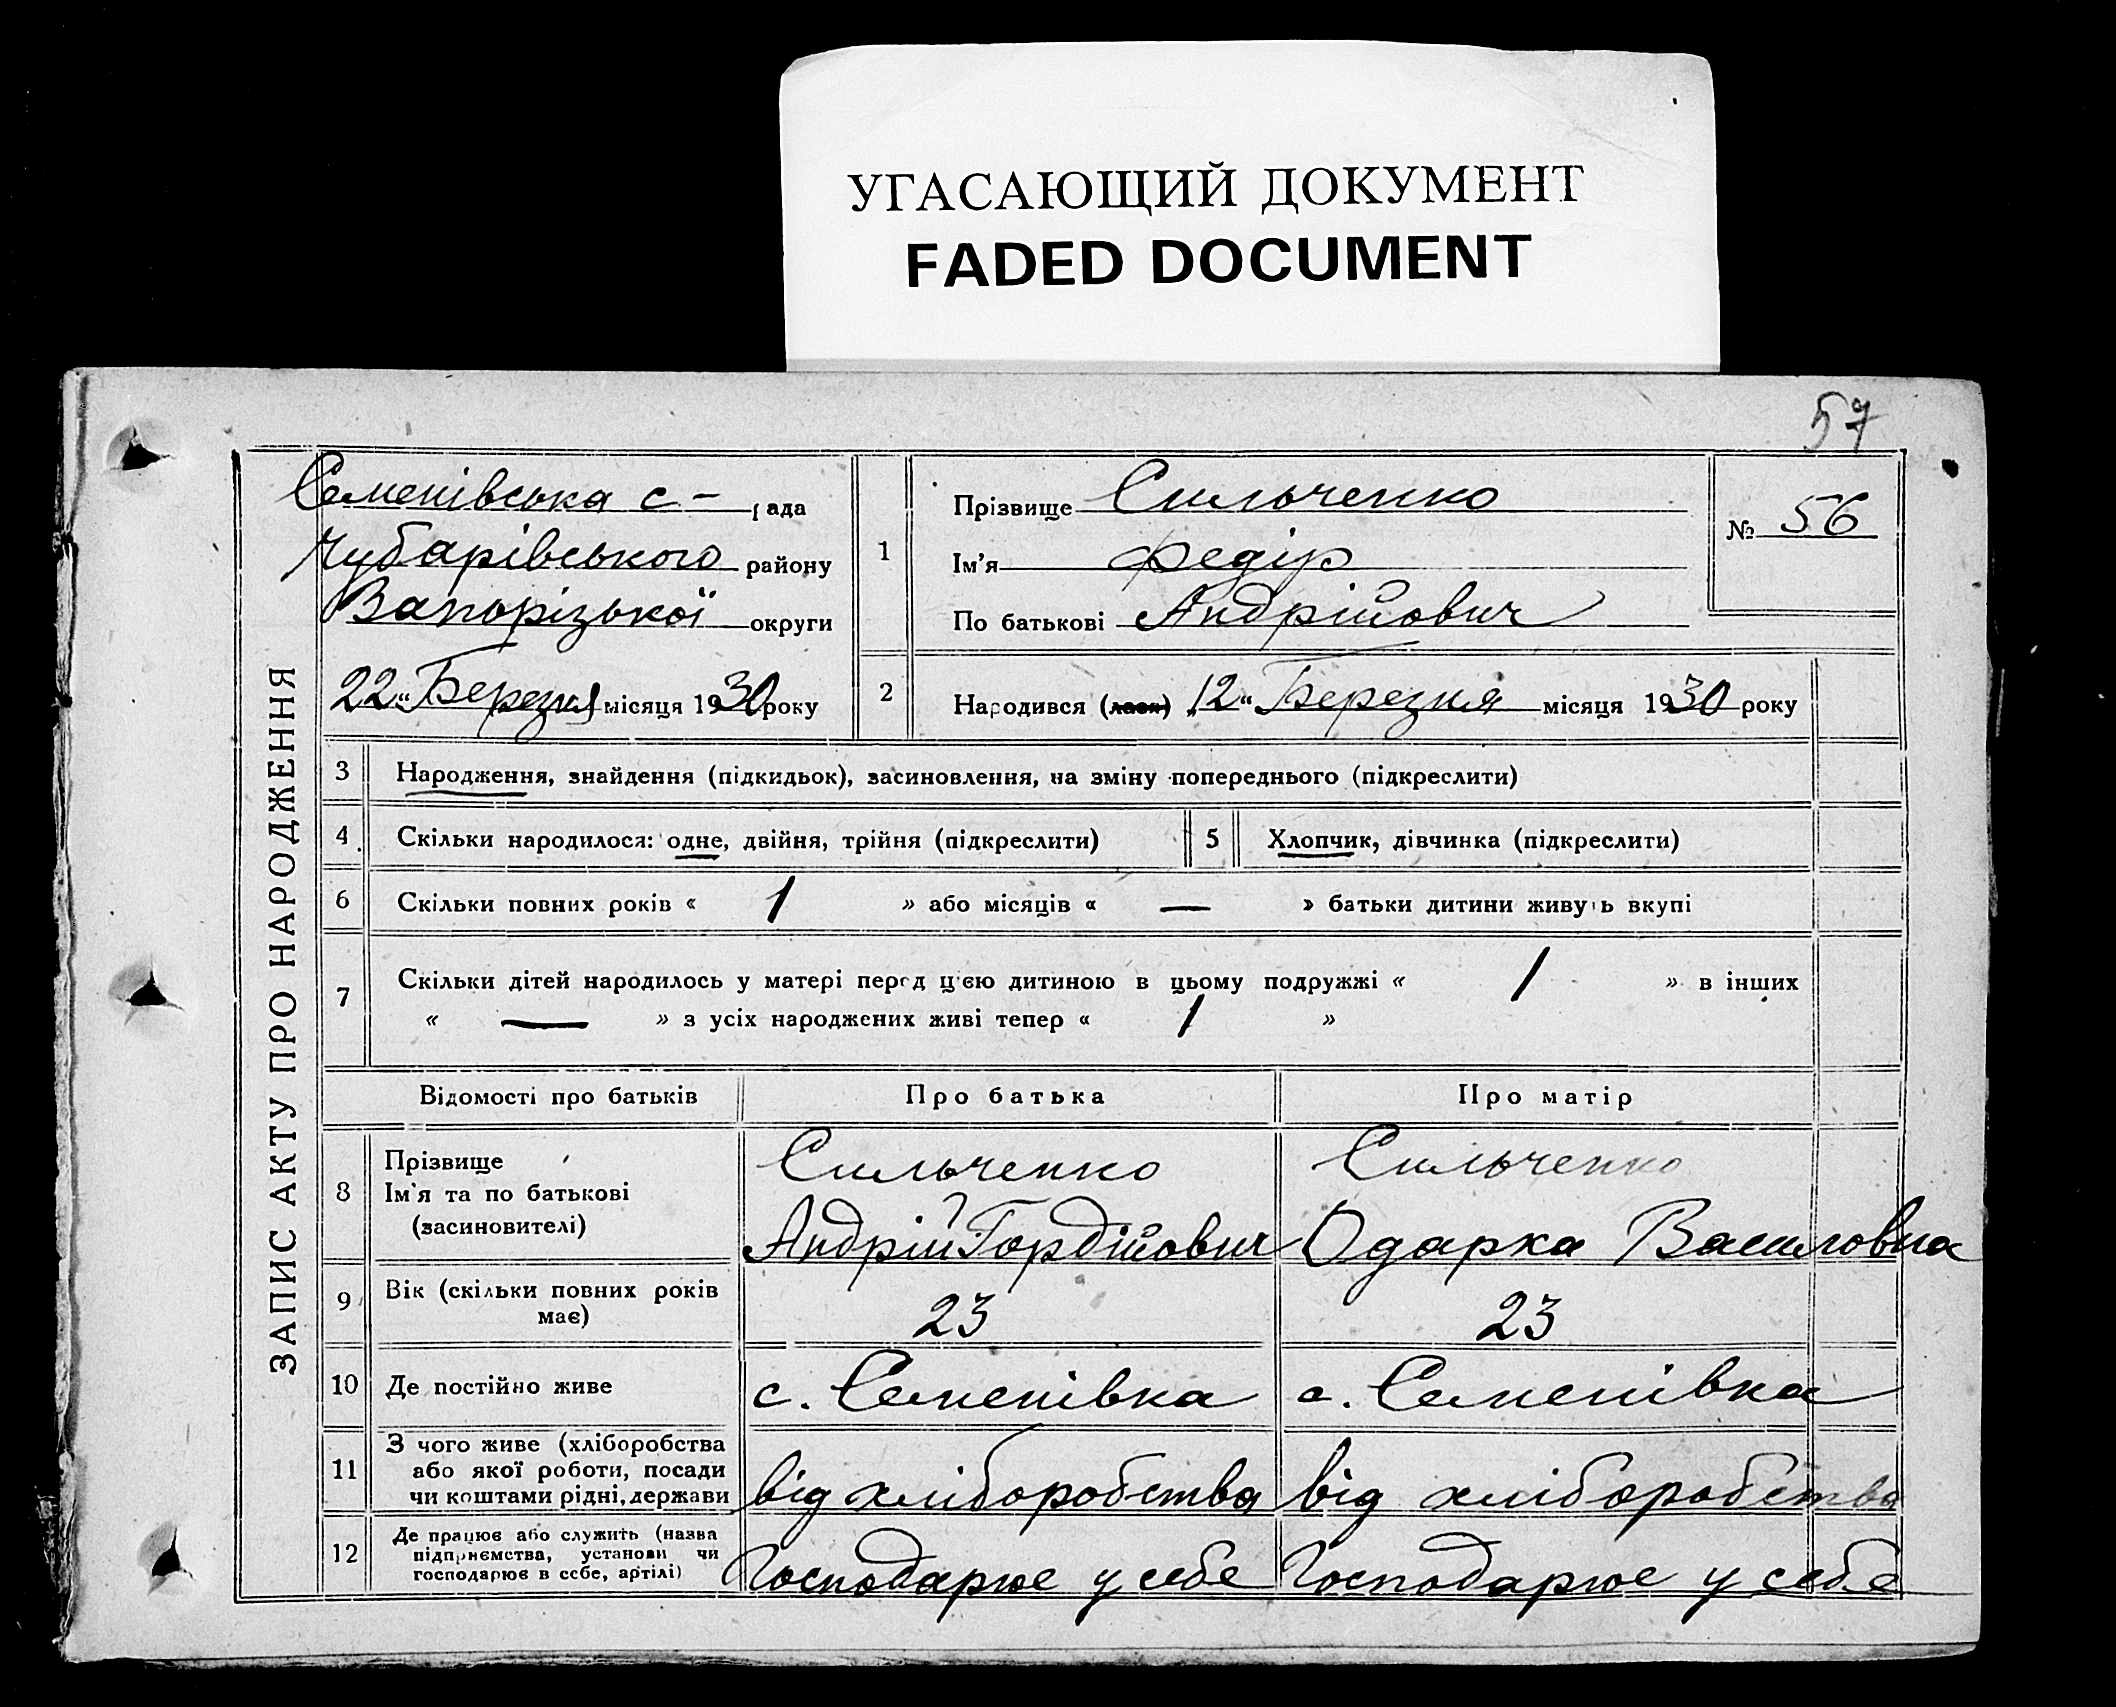 УГАСАЮЩИЙ ДОКУМЕНТ
FADED DOCUMENT
57
ЗАПИС АКТУ ПРО НАРОДЖЕННЯ
Семенівська с - рада
Чубарівського району
Запорізької округи
22 „ Березня місяця 1930 року
1
Прізвище Сильченко
Ім'я Федір
По батькові Андрійович
№ 56
2
Народився (лася) „12„ Березня місяця 1930 року
3 Народження, знайдення (підкидьок), засиновлення, на зміну попереднього (підкреслити)
4 Скільки народилося: одне, двійня, трійня (підкреслити)
5 Хлопчик, дівчинка (підкреслити)
6 Скільки повних років « 1 » або місяців « — » батьки дитини живуть вкупі
7 Скільки дітей народилось у матері перед цією дитиною в цьому подружжі « 1 » в інших
« — » з усіх народжених живі тепер « 1 »
Відомості про батьків Про батька Про матір
8
Прізвище
Ім'я та по батькові
(засиновителі)
Сильченко
Андрій Гордійович
Сильченко
Одарка Василовна
9 Вік (скільки повних років
має)
23
23
10 Де постійно живе
с. Семенівка
с. Семенівка
11
З чого живе (хліборобства
або якої роботи, посади
чи коштами рідні, держави
від хліборобства
від хліборобства
12
Де працює або служить (назва
підприємства, установи чи
господарює в себе, артілі)
Господарює у себе
Господарює у себе